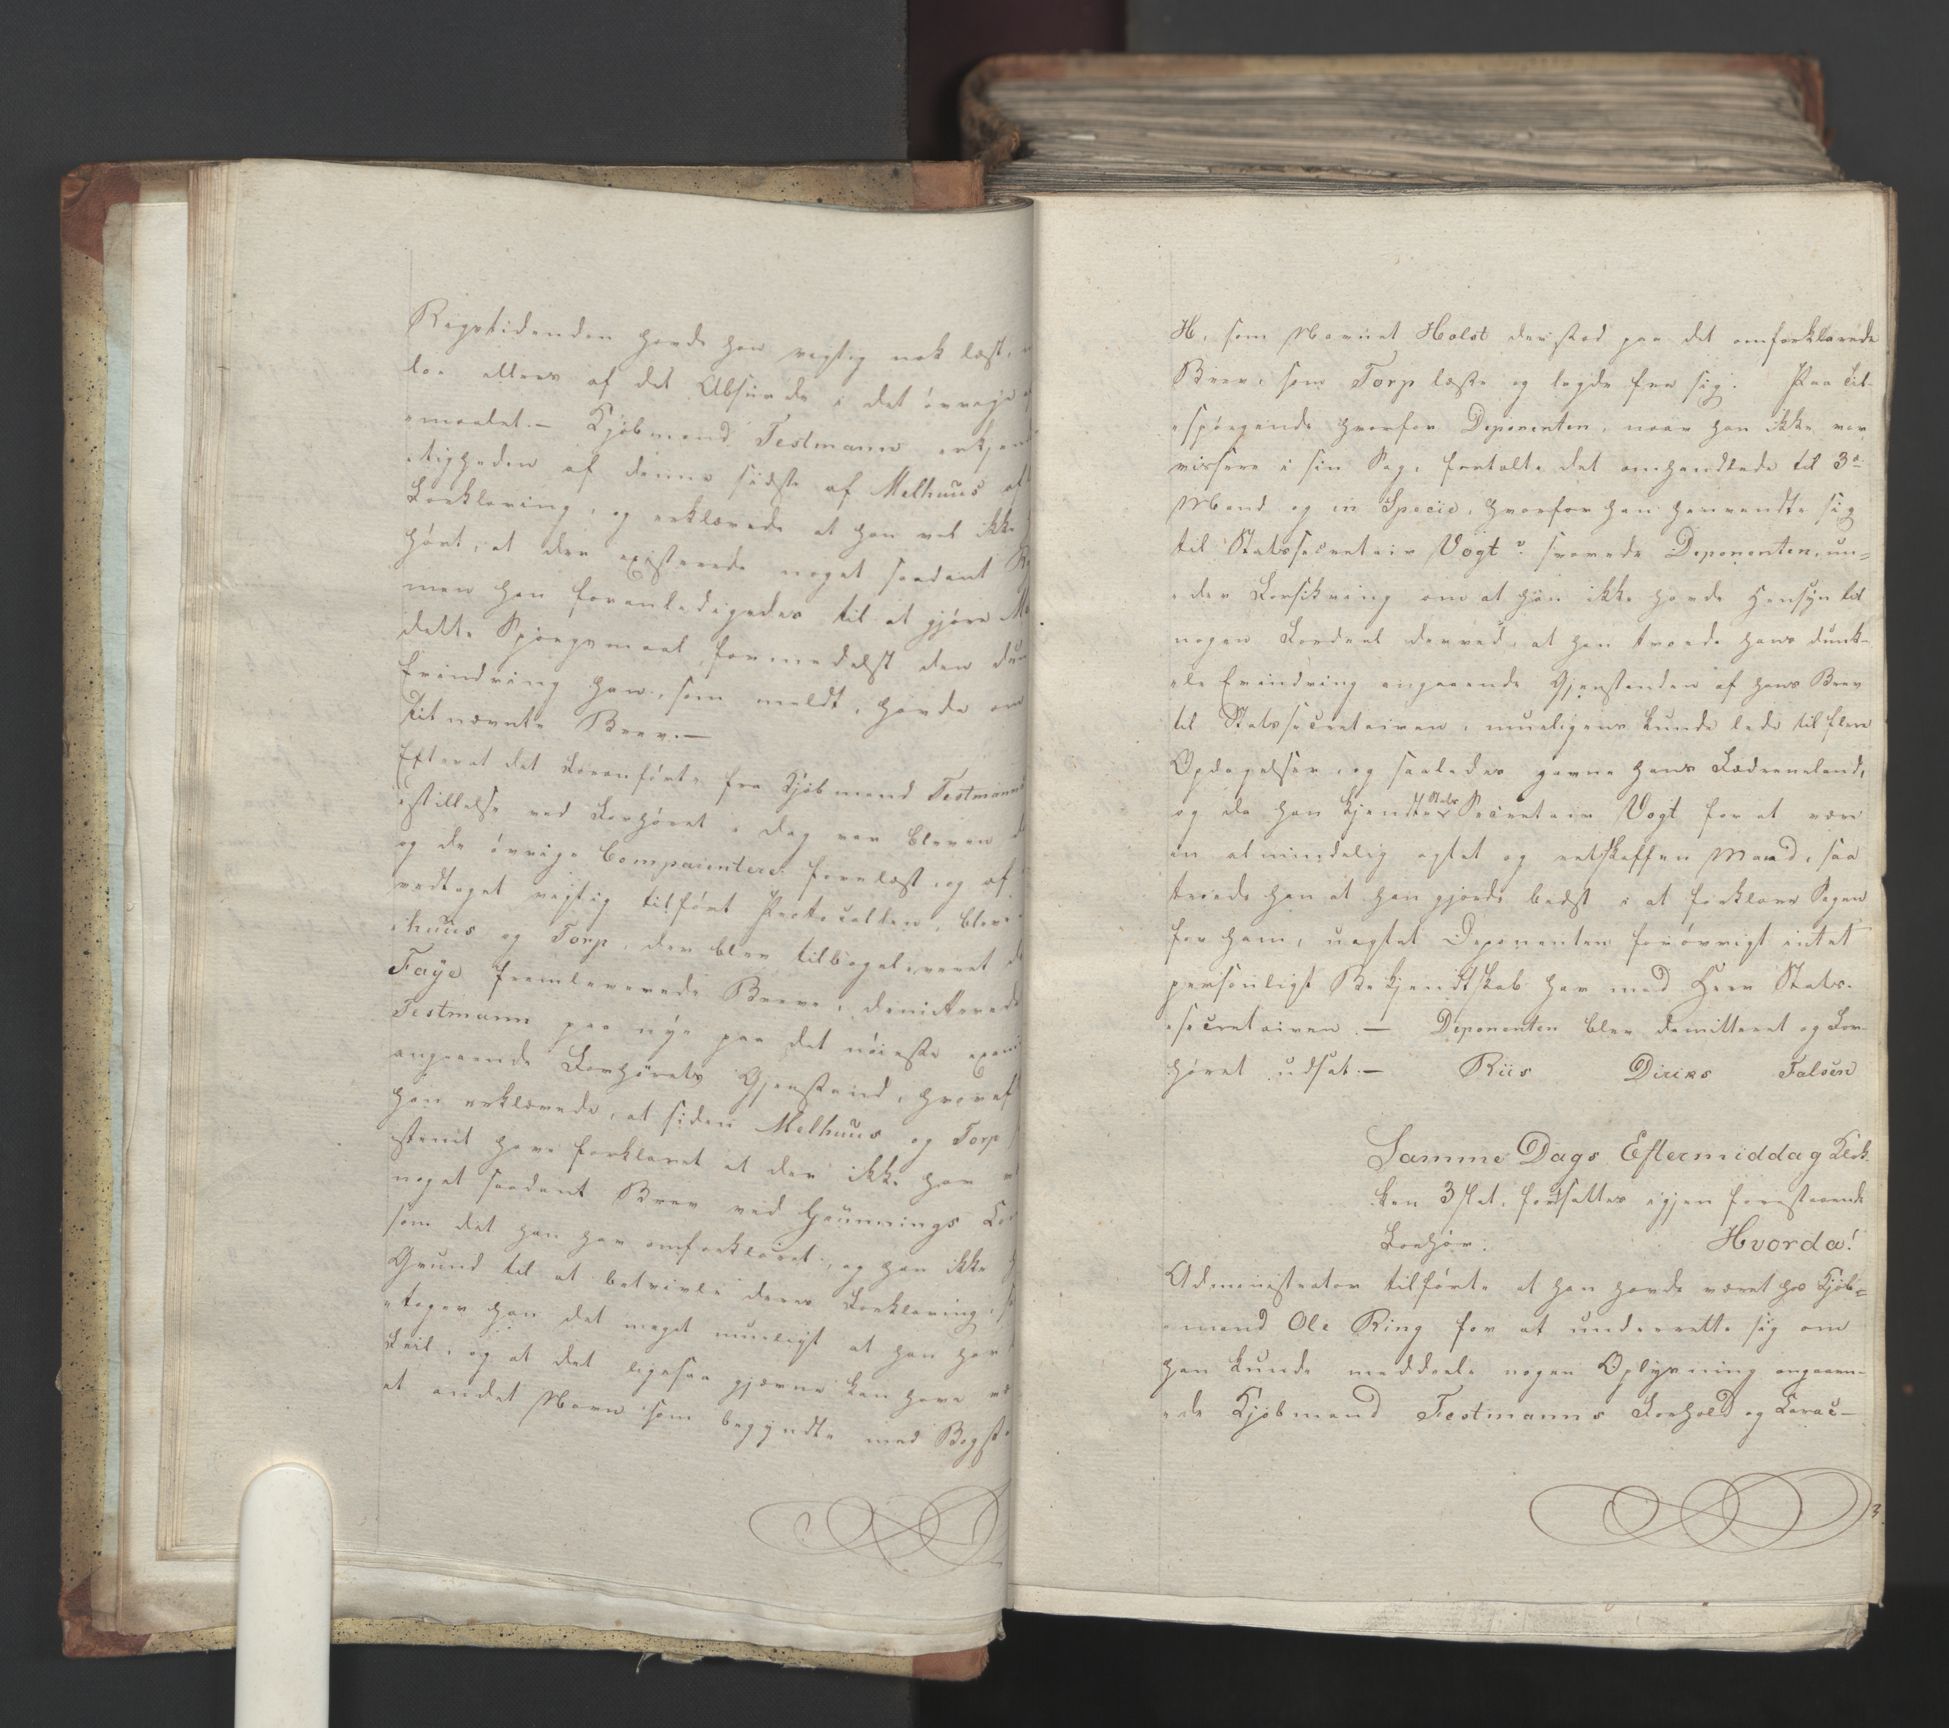 Rigstidenden havde han rigtig nok læst,
loe ellers af det Absurde i det øvrige
maalet. — Kjøbmand Testmann erkjend
tigheden af denne sidste af Melhuus
Forklaring, og erklærede at han vel ikke
hørt, at der existerede noget saadant
men han foranledigedes til at gjøre
dette Spørgsmaal, formedelst den
Erindring han, som meldt, havde om
nævnte Brev. —
Efterat det Foranførte fra Kjøbmand Testmanns
stillelse ved Forhøret i Dag var bleven
og de øvrige Comparentere forelæst, og af
vedtaget rigtig tilført Protocollen, bleve
huus og Torp, der blev tilbageleveret
Faye fremleverede Breve, dimitterede
Testmann paa nye paa det nøieste
angaaende Forhørets Gjenstand, hvoraf
han erklærede, at siden Melhuus og Torp
stemt have forklaret at der ikke har
noget saadant Brev ved Grünnings
som det han har omforklaret, og han ikke
Grund til at betvivle deres Forklaring,
tager han det meget mueligt at han har
Feil, og at det ligesaa gjerne kan have
et andet Navn som begyndte med Bogst
H, som Navnet Holst der stod paa det omforklarede
Brev, som Torp læste og lagde fra sig. Paa Til-
spørgende hvorfor Deponenten, naar han ikke var
vissere i sin Sag, fortalte det omhandlede til 3die
Mand og in Specie, hvorfor han henvendte sig
til Statssecretair Vogt? svarede Deponenten, un=
der Forsikring om at han ikke havde Hensyn til
nogen Fordeel derved, at han troede hans dunk-
le Erindring angaaende Gjenstanden af hans Brev
til Statssecretairen, mueligens kunde lede til flere
Opdagelser, og saaledes gavne hans Fædreneland,
og da han kjendte Stats Secretair Vogt for at være
en almindelig agtet og retskaffen Mand, saa
troede han at han gjorde bedst i at forklare Sagen
for ham, uagtet Deponenten forøvrigt intet
personligt Bekjendtskab har med Herr Stats-
secretairen. — Deponenten blev demitteret og For-
høret udsat. — Riis Diriks Falsen
Samme Dags Eftermiddag Klok-
ken 3 slet, fortsattes igjen forestaaende
Forhør. Hvorda!
Administrator tilførte at han havde været hos Kjøb=
mand Ole Ring for at underrette sig om
han kunde meddeele nogen Oplysning angaaen-
de Kjøbmand Testmanns Forhold og Carac-